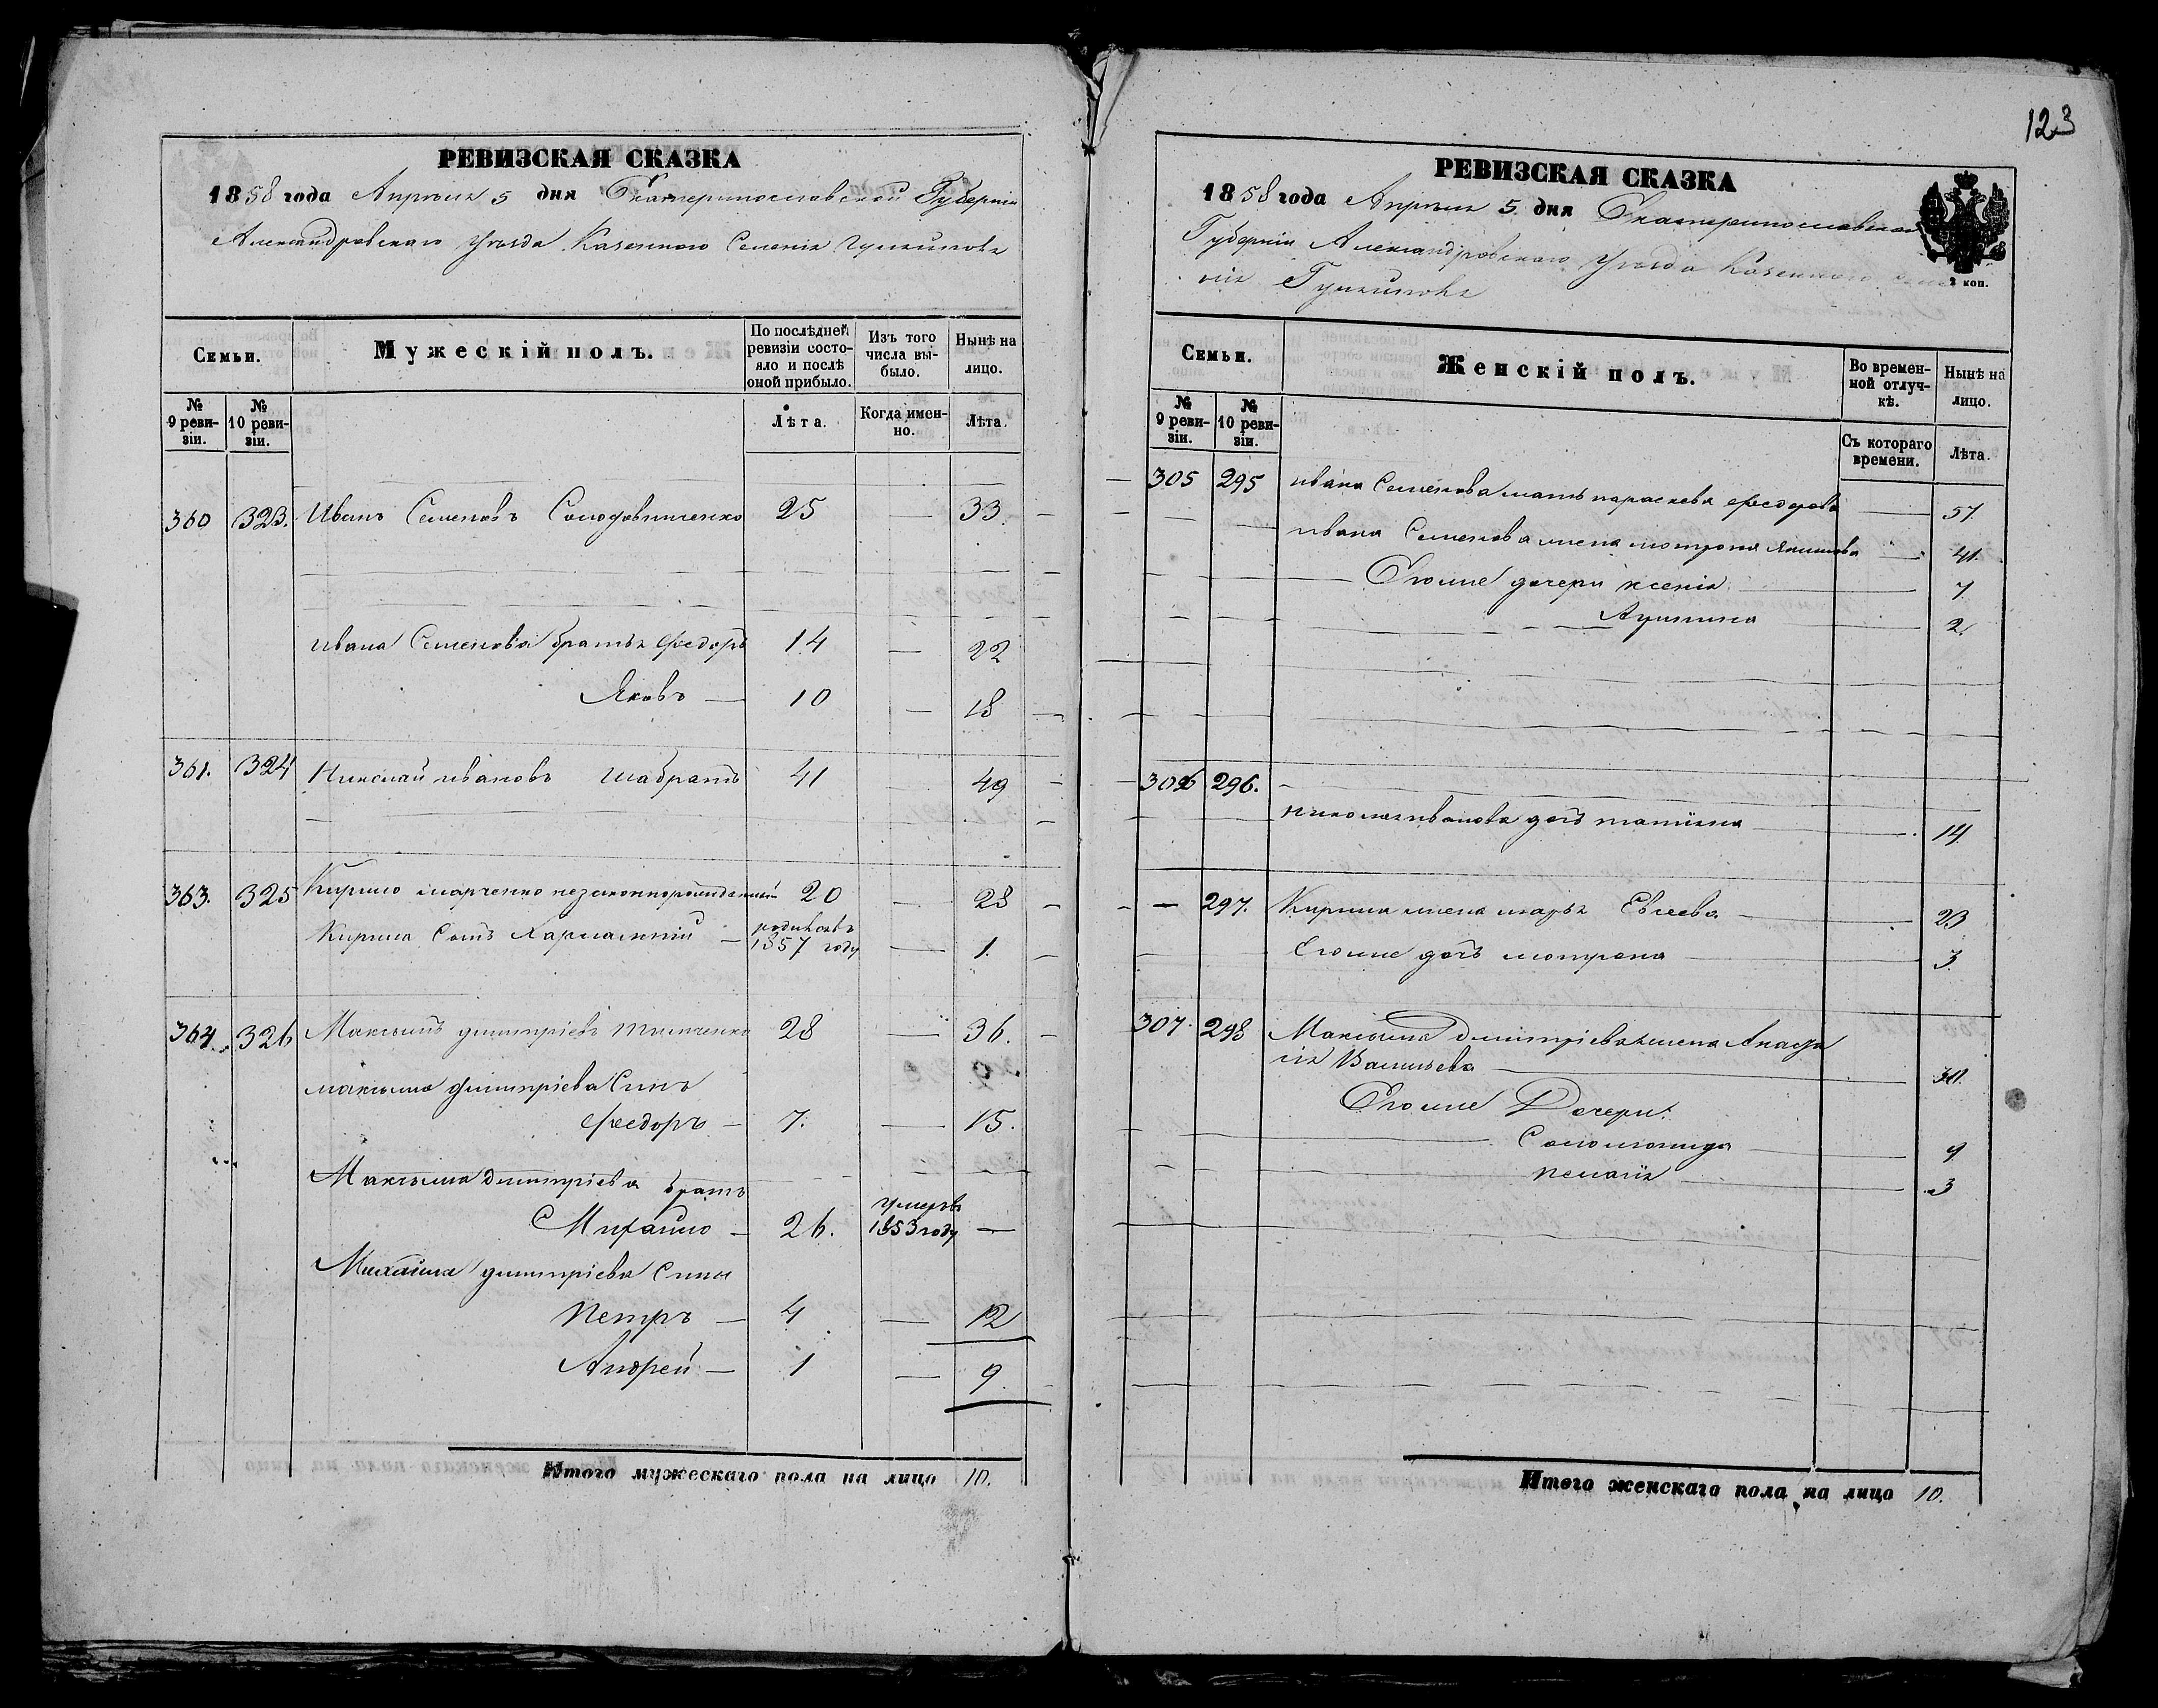 123
РЕВИЗСКАЯ СКАЗКА
1858 года Апреля 5 дня Екатеринославской Губернии
Александровскаго Уезда Казеннаго Селения Гуляйполя
Семьи.
Мужескій полъ.
По послѣдней ревизіи состояло и послѣ оной прибыло.
Изъ того числа выбыло.
Нынѣ на лицо.
№ 9 ревизіи.
№ 10 ревизіи.
Лѣта.
Когда именно.
Лѣта.
360 323. Иванъ Семеновъ 25 — 33.
ивана Семенова братья федоръ 14 — 22
Яковъ — 10 — 18
361. 324 Николай ивановъ шабратъ 41 49
363. 325 Кирило марченко незаконнорожденный 20 — 28
Кирила Сынъ Харлампий — родился в 1857 году — 1.
364. 326 Максимъ димитріевъ 28 — 36.
максима димитріева Синъ
федоръ — 7. — 15.
Максима Димитріева братъ
Михайло — 26. умеръ 1853 году —
Михайла димитріева Сины
Петръ — 4 — 12
Андрей — 1 — 9
Итого мужескаго пола на лицо 10.
РЕВИЗСКАЯ СКАЗКА
1858 года Апреля 5 дня Екатеринославской
Губернии Александровскаго Уезда Казеннаго Селе
ния Гуляйполя
2 коп.
Семьи.
Женскій полъ.
Во временной отлучкѣ.
Нынѣ на лицо.
№ 9 ревизіи.
№ 10 ревизіи.
Съ котораго времени.
Лѣта.
305 295 ивана Семенова мать параскева федорова — 57.
ивана Семенова жена мотрона — 41.
Егоже дочери ксенія — 7.
— 2.
306 296.
николая иванова дочь татіяна — 14.
— 297. Кирила жена марья Евсеева — 23
Егоже дочь мотрона — 3.
307. 298 Максима Димитріева жена Анаста
сія Васильева —
Егоже Дочери:
Соломонида — 9
пелагія — 3
Итого женскаго пола на лицо 10.